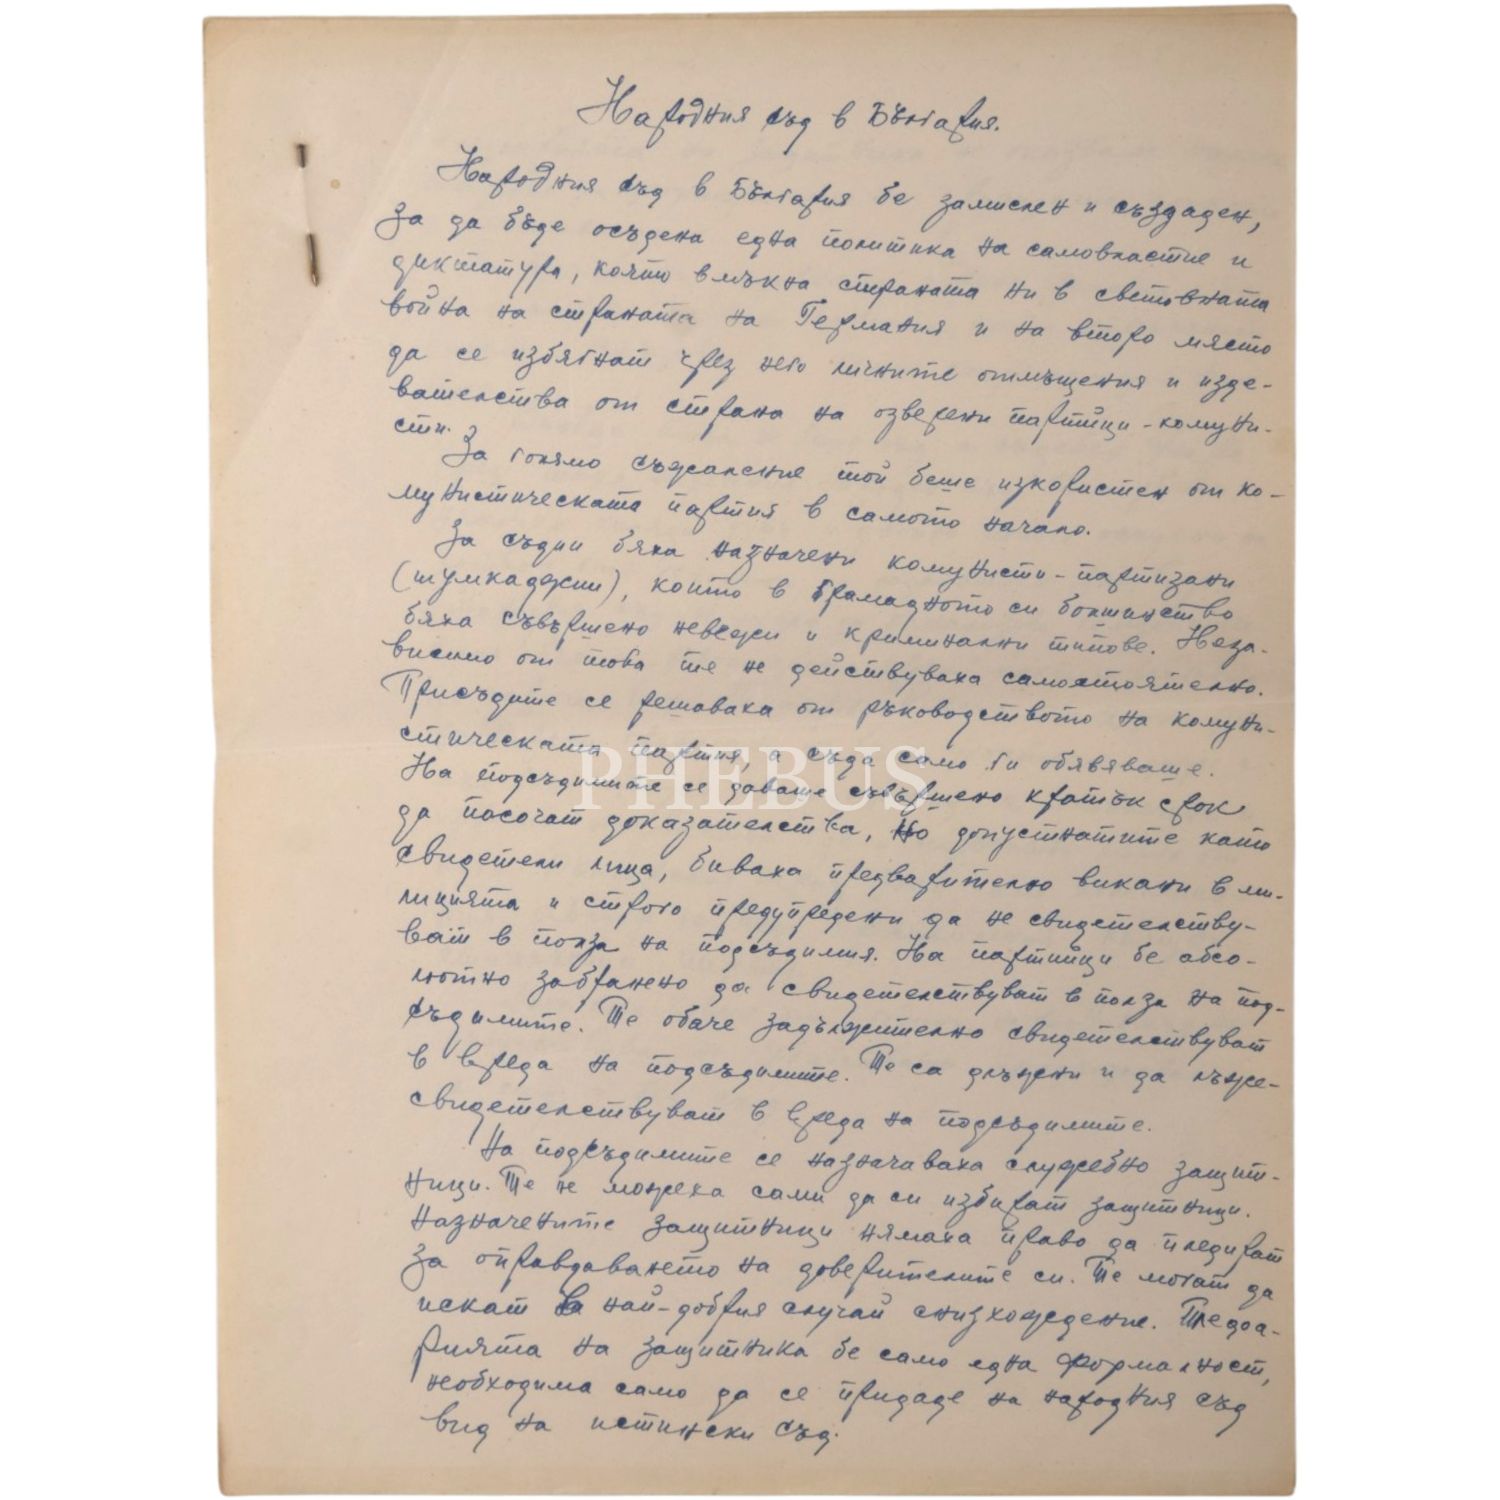 Народния съд в България.
Народния съд в България бе замислен и създаден,
за да бъде осъдена една политика на самовластие и
диктатура, която вмъкна страната ни в световната
война на страната на Германия и на второ място
да се избягнат чрез него личните отмъщения и изде-
вателства от страна на озверени партийци-комуни-
сти.
За голямо съжаление той беше изкористен от ко-
мунистическата партия в самото начало.
За съдии бяха назначени комунисти-партизани
(шумкаджии), които в грамадното си болшинство
бяха съвършено невежи и криминални типове. Неза-
висимо от това те не действуваха самостоятелно.
Присъдите се решаваха от ръководството на комуни-
стическата партия, а съда само ги обявяваше.
На подсъдимите се даваше съвършено кратък срок
да посочат доказателства, но допуснатите като
свидетели лица, биваха предварително викани в ми-
лицията и строго предупредени да не свидетелству-
ват в полза на подсъдимия. На партийци бе абсо-
лютно забранено да свидетелствуват в полза на под-
съдимите. Те обаче задължително свидетелствуват
в вреда на подсъдимите. Те са длъжни и да лъже-
свидетелствуват в вреда на подсъдимите.
На подсъдимите се назначаваха служебно защит-
ници. Те не можеха сами да си избират защитници.
Назначените защитници нямаха право да пледират
за оправдаването на доверителите си. Те могат да
искат в най-добрия случай снизхождение. Пледоа-
рията на защитника бе само една формалност,
необходима само да се придаде на народния съд
вид на истински съд.
PHEBUS